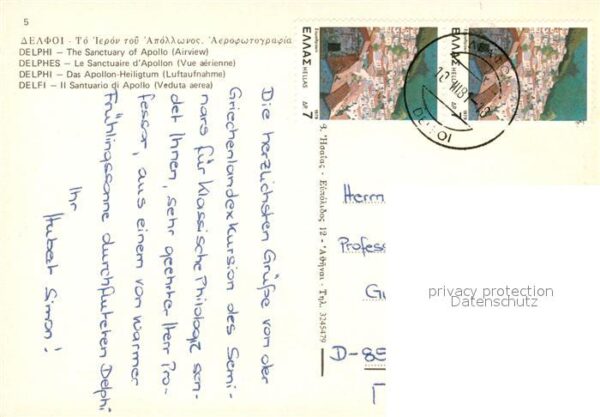 5
ΔΕΛΦΟΙ - Τὸ Ἱερόν τοῦ Ἀπόλλωνος. Ἀεροφωτογραφία
DELPHI — The Sanctuary of Apollo (Airview)
DELPHES — Le Sanctuaire d'Apollon (Vue aérienne)
DELPHI — Das Apollon-Heiligtum (Luftaufnahme)
DELFI — Il Santuario di Apollo (Veduta aerea)
Die herzlichsten Grüße von der
Griechenlandexkursion des Semi-
nars für Klassische Philologie sen-
det Ihnen, sehr geehrter Herr Pro-
fessor, aus einem von warmer
Frühlingssonne durchfluteten Delphi
Ihr
Hubert Simon!
Ἡσαΐας - Εὐπόλιδος 12 - Ἀθῆναι - Τηλ. 3245479
ΕΛΛΑΣ HELLAS
ΔΡ. 7
ΕΛΛΑΣ HELLAS
ΔΡ. 7
Herrn
Profess
D-85
privacy protection
Datenschutz